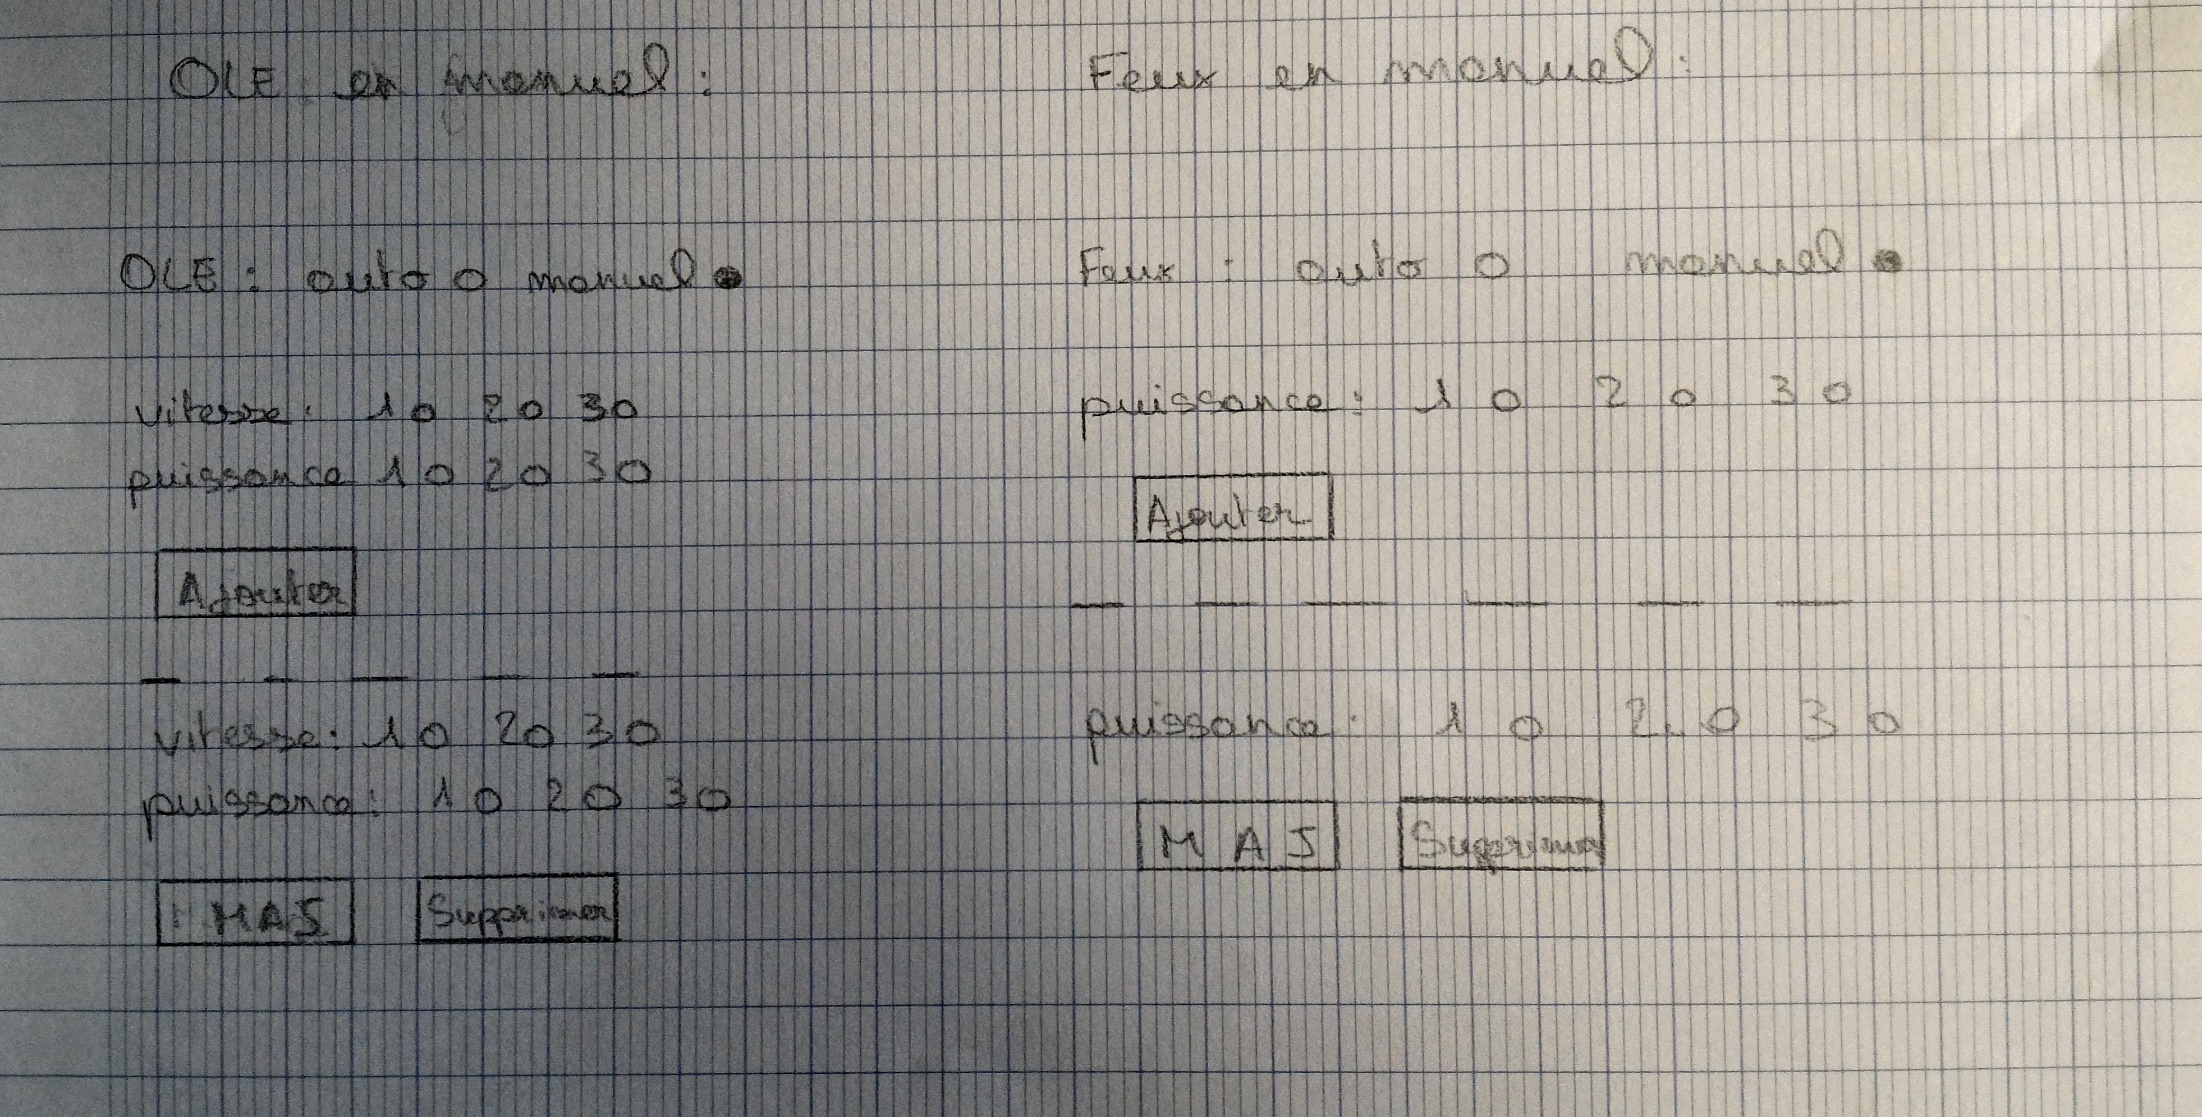 OLE en manuel :
OLE : auto O manuel ●
vitesse : 1 O 2 O 3 O
puissance 1 O 2 O 3 O
Ajouter
_ _ _ _ _
vitesse : 1 O 2 O 3 O
puissance : 1 O 2 O 3 O
MAJ Supprimer
Feux en manuel :
Feux : auto O manuel ●
puissance : 1 O 2 O 3 O
Ajouter
_ _ _ _ _ _
puissance : 1 O 2 O 3 O
MAJ Supprimer